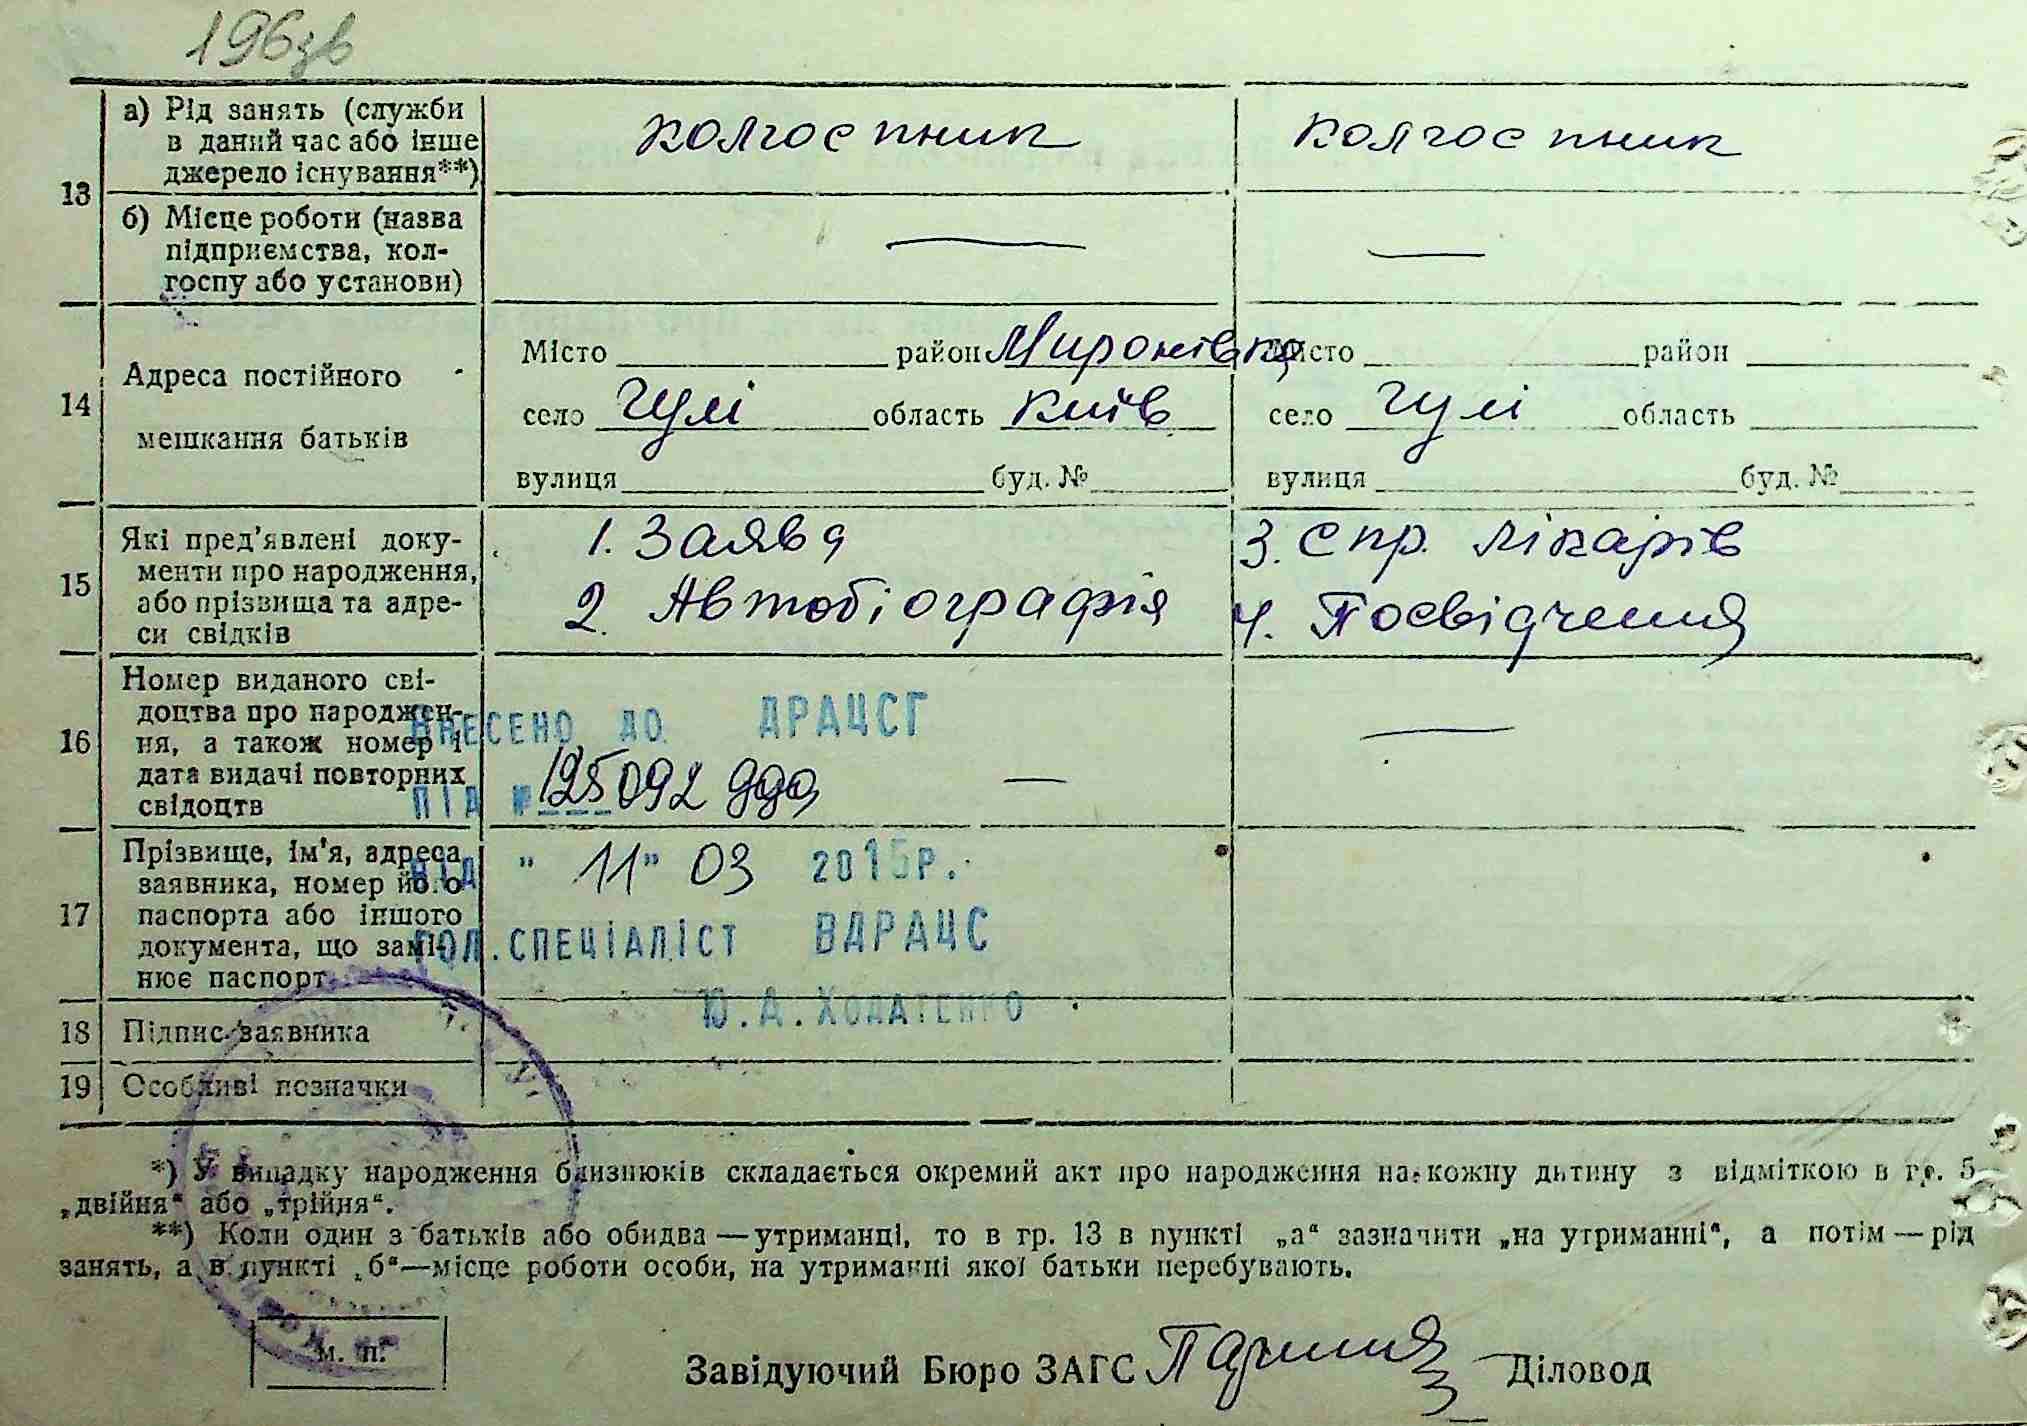 196зв
13
а) Рід занять (служби
в даний час або інше
джерело існування**)
колгоспник
колгоспник
б) Місце роботи (назва
підприємства, кол-
госпу або установи)
—
—
14
Адреса постійного
мешкання батьків
Місто район Миронівка
село Гулі область Київ
вулиця буд. №
Місто район
село Гулі область
вулиця буд. №
15
Які пред'явлені доку-
менти про народження,
або прізвища та адре-
си свідків
1. Заява
2. Автобіографія
3. Спр. лікарів
4. Посвідчення
16
Номер виданого сві-
доцтва про народжен-
ня, а також номер і
дата видачі повторних
свідоцтв
ВНЕСЕНО ДО ДРАЦСГ
ПІД № 125092
—
—
17
Прізвище, ім'я, адреса
заявника, номер його
паспорта або іншого
документа, що замі-
нює паспорт
ВІД " 11 " 03 2015Р.
ГОЛ.СПЕЦІАЛІСТ ВДРАЦС
Ю.А.ХОДАТЕНКО
18
Підпис заявника
19
Особливі позначки
*) У випадку народження близнюків складається окремий акт про народження на кожну дитину з відміткою в гр. 5
„двійня“ або „трійня“.
**) Коли один з батьків або обидва — утриманці, то в гр. 13 в пункті „а“ зазначити „на утриманні“, а потім — рід
занять, а в пункті „б“—місце роботи особи, на утриманні якої батьки перебувають.
м. п.
Завідуючий Бюро ЗАГС
Діловод